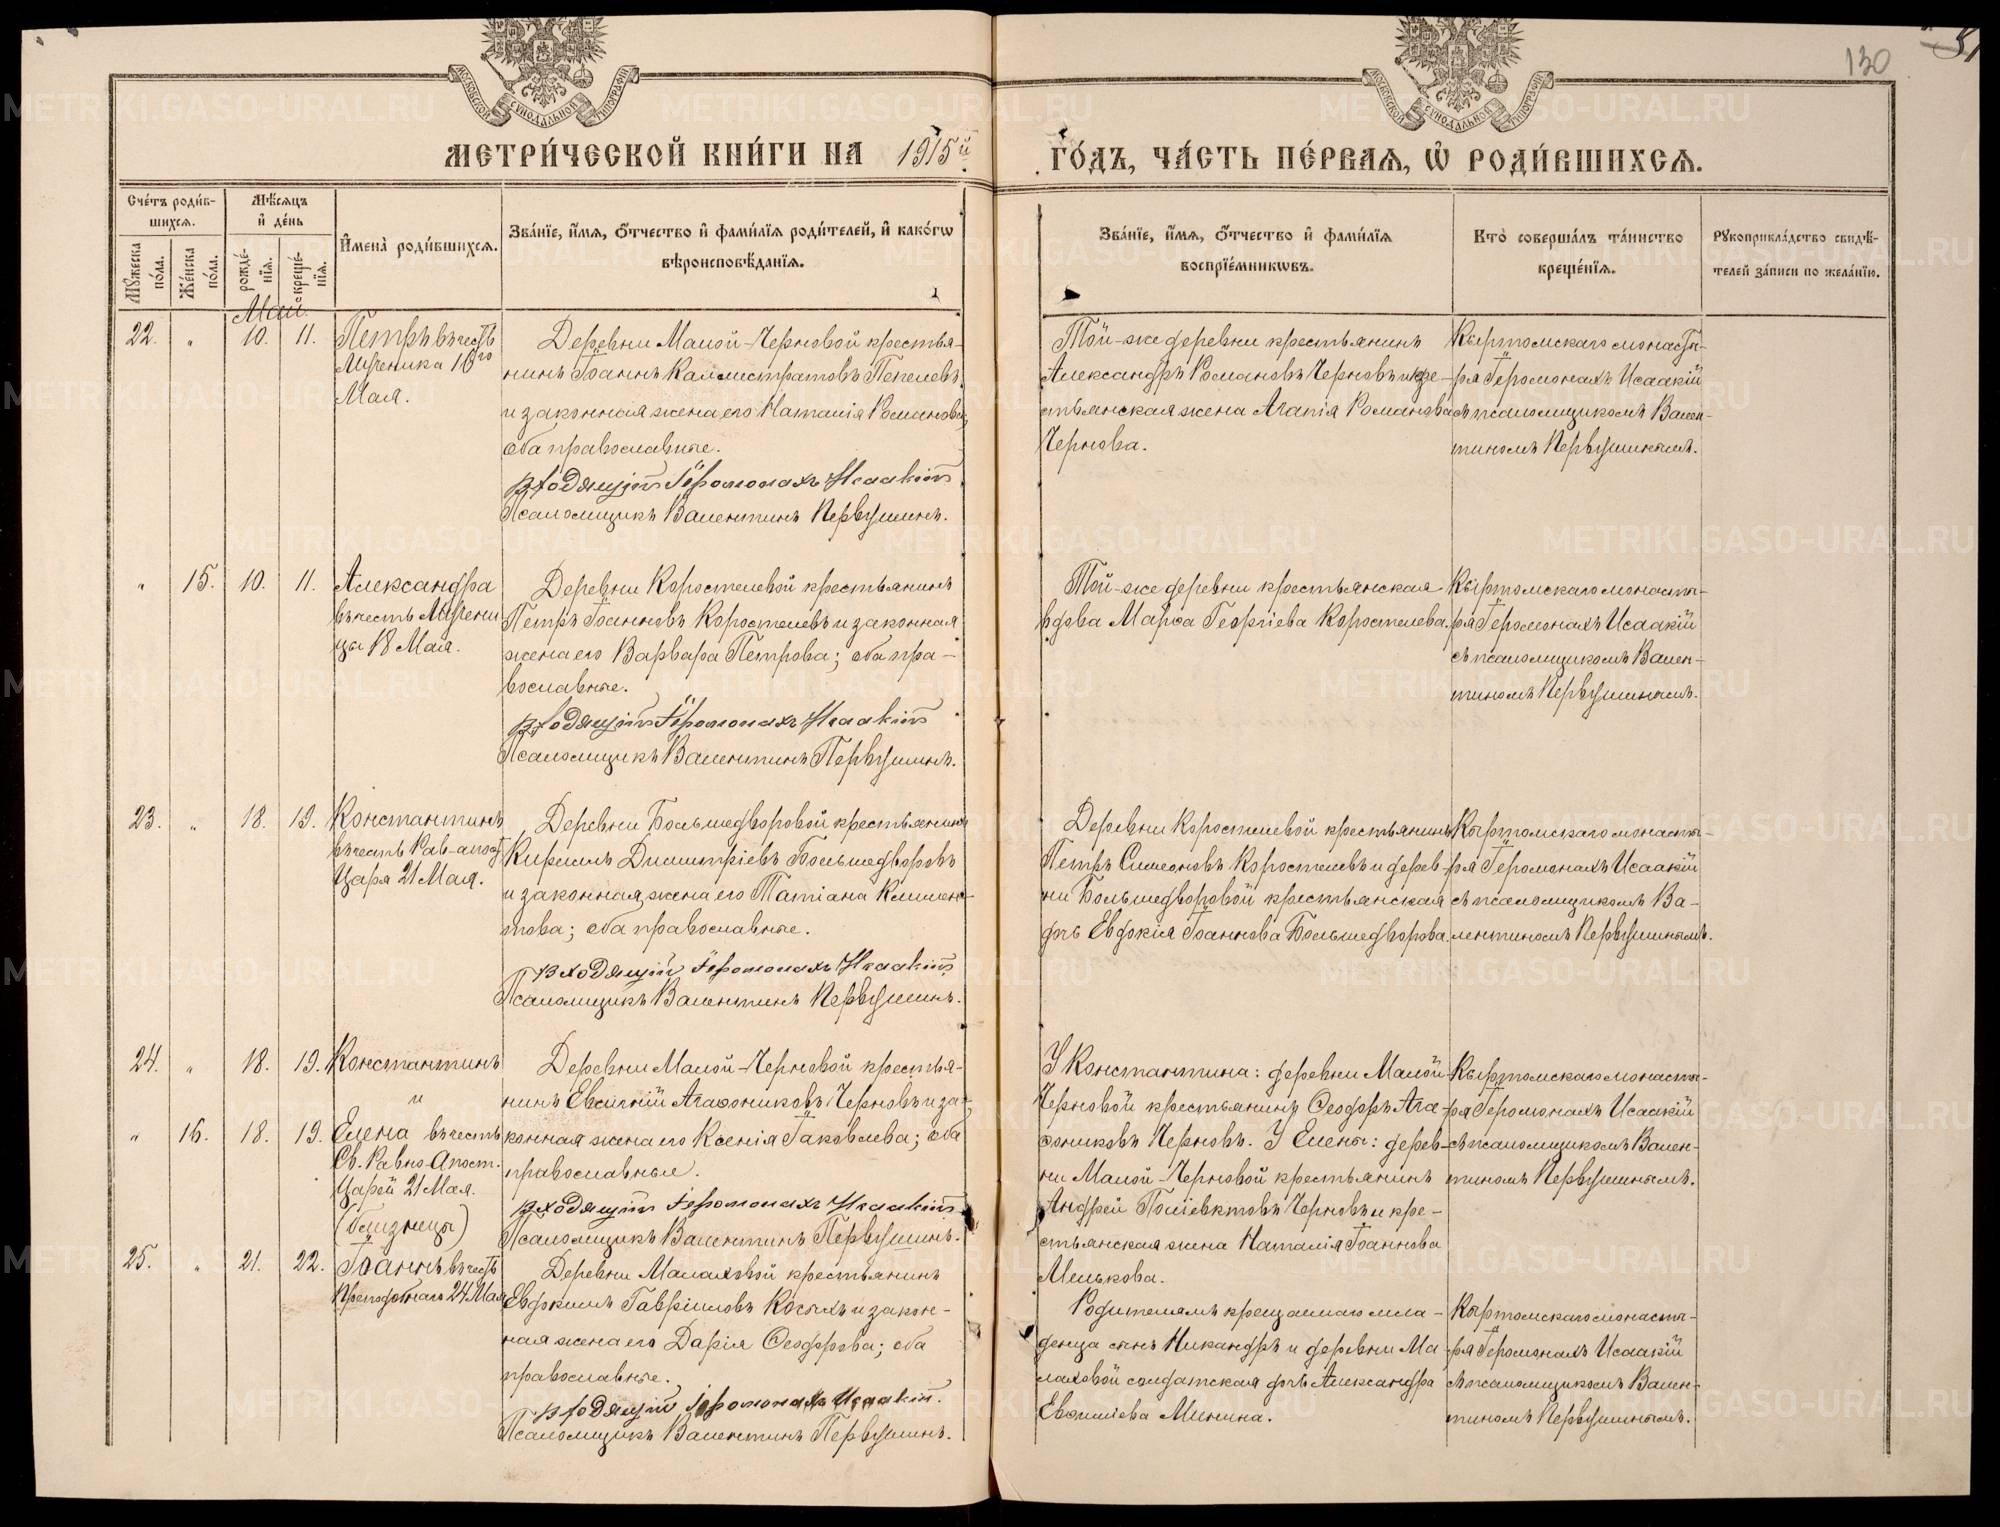 130
51
МОСКОВСКОЙ СѴНОДАЛЬНОЙ ТИПОГРАФІИ
МОСКОВСКОЙ СѴНОДАЛЬНОЙ ТИПОГРАФІИ
МЕТРИ́ЧЕСКОЙ КНИ́ГИ НА 1915й ГО́ДЪ, ЧА́СТЬ ПЕ́РВАѦ, Ѽ РОДИ́ВШИХСѦ.
Сче́тъ роди́в-
шихсѧ.
Мꙋ́жеска по́ла.
Же́нска по́ла.
Мѣ́сѧцъ
и҆ де́нь
рожде́-
нїѧ.
креще́-
нїѧ.
И҆мена̀ роди́вшихсѧ.
Зва́нїе, и҆́мѧ, ѻ҆́тчество и҆ фами́лїѧ роди́телей, и҆ како́гѡ
вѣроисповѣ́данїѧ.
Зва́нїе, и҆́мѧ, ѻ҆́тчество и҆ фами́лїѧ
воспрїе́мникѡвъ.
Кто̀ соверша́лъ та́инство
креще́нїѧ.
Рꙋкоприкла́дство свидѣ́-
телей за́писи по жела́нїю.
Май.
22. " 10. 11. Петръ въ честь
Мученика 18го
Мая.
Деревни Малой-Черновой крестья-
нинъ Іоаннъ Каллистратовъ Пепелевъ
и законная жена его Наталія Романова,
оба православные.
Входящій Іеромонахъ Исаакій
Псаломщикъ Валентинъ Первушинъ.
Той-же деревни крестьянинъ
Александръ Романовъ Черновъ и кре-
стьянская жена Агапія Романова
Чернова.
Кыртомскаго монасты-
ря Іеромонахъ Исаакій
съ псаломщикомъ Вален-
тиномъ Первушинымъ.
" 15. 10. 11. Александра
въ честь Мучени
цы 18 Мая.
Деревни Коростелевой крестьянинъ
Петръ Іоанновъ Коростелевъ и законная
жена его Варвара Петрова; оба пра-
вославные.
Входящій Іеромонахъ Исаакій
Псаломщикъ Валентинъ Первушинъ.
Той-же деревни крестьянская
вдова Марѳа Георгіева Коростелева.
Кыртомскаго монасты-
ря Іеромонахъ Исаакій
съ псаломщикомъ Вален-
тиномъ Первушинымъ.
23. " 18. 19. Константинъ
въ честь Рав-апост.
Царя 21 Мая.
Деревни Большедворовой крестьянинъ
Кириллъ Димитріевъ Большедворовъ
и законная жена его Татіана Климен-
това; оба православные.
Входящій Іеромонахъ Исаакій
Псаломщикъ Валентинъ Первушинъ.
Деревни Коростелевой крестьянинъ
Петръ Симеоновъ Коростелевъ и дерев-
ни Большедворовой крестьянская
дочь Евдокія Іоаннова Большедворова.
Кыртомскаго монасты-
ря Іеромонахъ Исаакій
съ псаломщикомъ Ва-
лентиномъ Первушинымъ.
24. " 18. 19. Константинъ
и
" 16. 18. 19. Елена въ честь
Св. Равно-Апост.
Царей 21 Мая.
(близнецы)
Деревни Малой-Черновой крестья-
нинъ Евсигній Агаѳониковъ Черновъ и за-
конная жена его Ксенія Іаковлева; оба
православные.
Входящій Іеромонахъ Исаакій
Псаломщикъ Валентинъ Первушинъ.
У Константина: деревни Малой
Черновой крестьянинъ Ѳеодоръ Ага-
ѳониковъ Черновъ. У Елены: дерев-
ни Малой-Черновой крестьянинъ
Андрей Поліевктовъ Черновъ и кре-
стьянская жена Наталія Іоаннова
Мелькова.
Кыртомскаго монасты-
ря Іеромонахъ Исаакій
съ псаломщикомъ Вален-
тиномъ Первушинымъ.
25. " 21. 22. Іоаннъ въ честь
Преподобнаго 24 Мая
Деревни Малаховой крестьянинъ
Евдокимъ Гавріиловъ Косыхъ и закон-
ная жена его Дарія Ѳеодорова; оба
православные.
Входящій Іеромонахъ Исаакій.
Псаломщикъ Валентинъ Первушинъ.
Родителямъ крещаемаго мла-
денца сынъ Никандръ и деревни Ма-
лаховой солдатская дочь Александра
Евѳиміева Минина.
Кыртомскаго монасты-
ря Іеромонахъ Исаакій
съ псаломщикомъ Вален-
тиномъ Первушинымъ.
METRIKI.GASO-URAL.RU